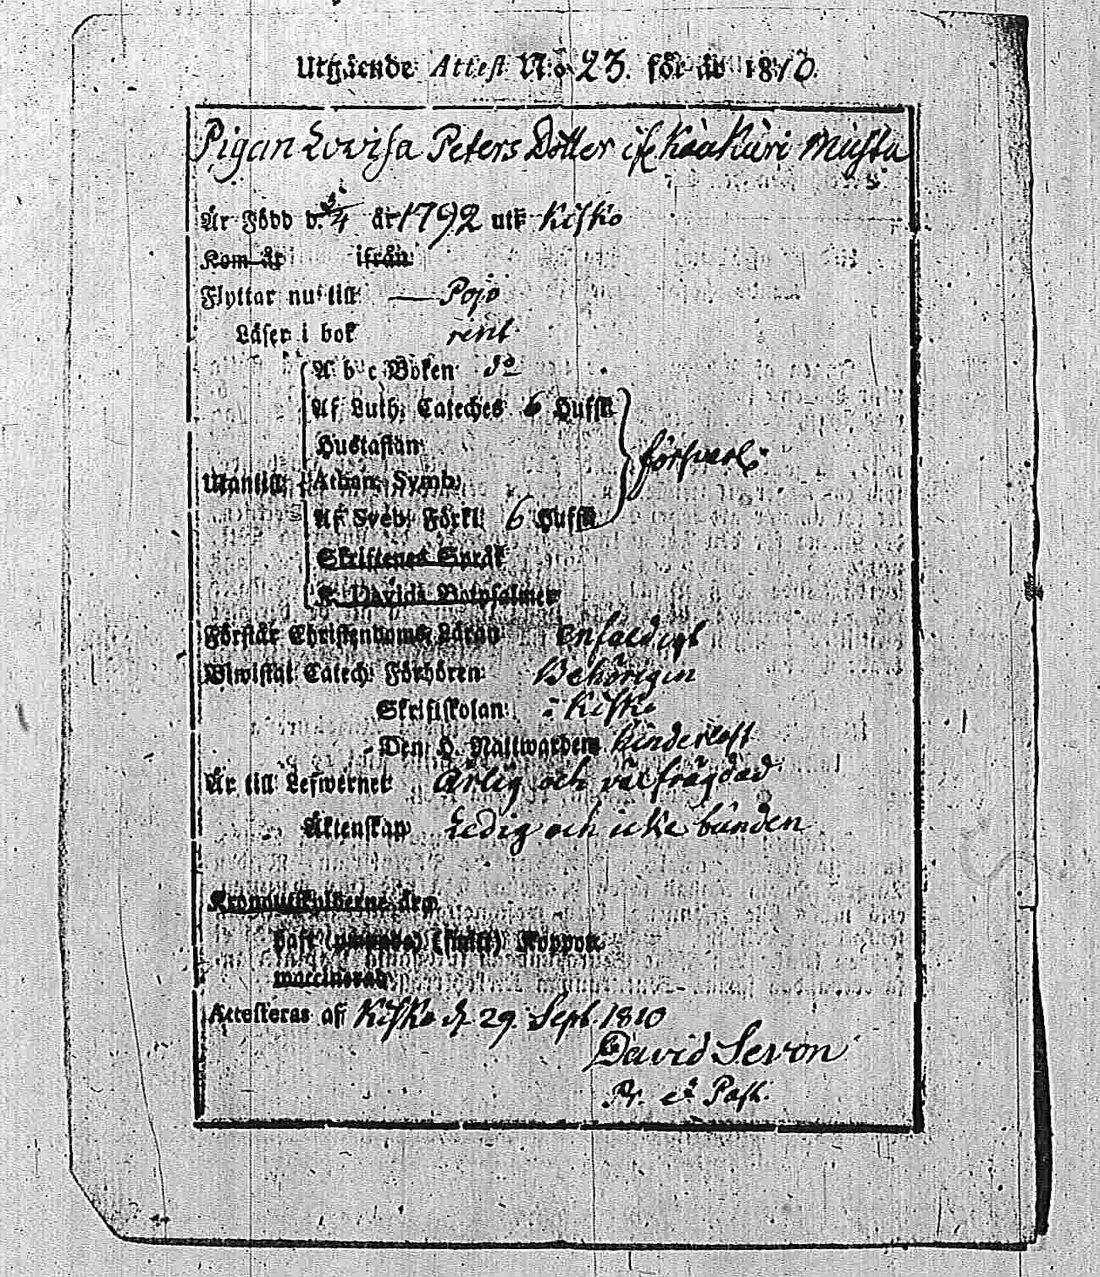 Utgående Attest N:o 23. för år 1810.
Pigan Lovisa Peters Dotter if Kaukuri Musta
Är Född d. 3/4 år 1792 uti Kisko
Kom år ifrån
Flyttar nu till — Pojo
Läser i bok rent
A b c Boken do
Af Luth. Cateches 6 Hufst.
Hustaflan
Utantill: Athan. Symb.
Af Sveb. Förkl. 6 Hufst.
försvarl.
Skriftenes Språk
K. Davids Botpsalmer
Förstår Christendoms Läran Enfaldigt
Biwistat Catech. Förhören Behörigen
Skriftskolan i Kisko
Den H. Nattwarden hinderlöst
Är till Lefwernet Ärlig och välfrägdad
Äktenskap Ledig och icke bunden
Kronoutskylderne äro
haft Koppor
waccinerad
Attesteras af Kisko d. 29. Sept. 1810
David Sevon
Pr. et Past.